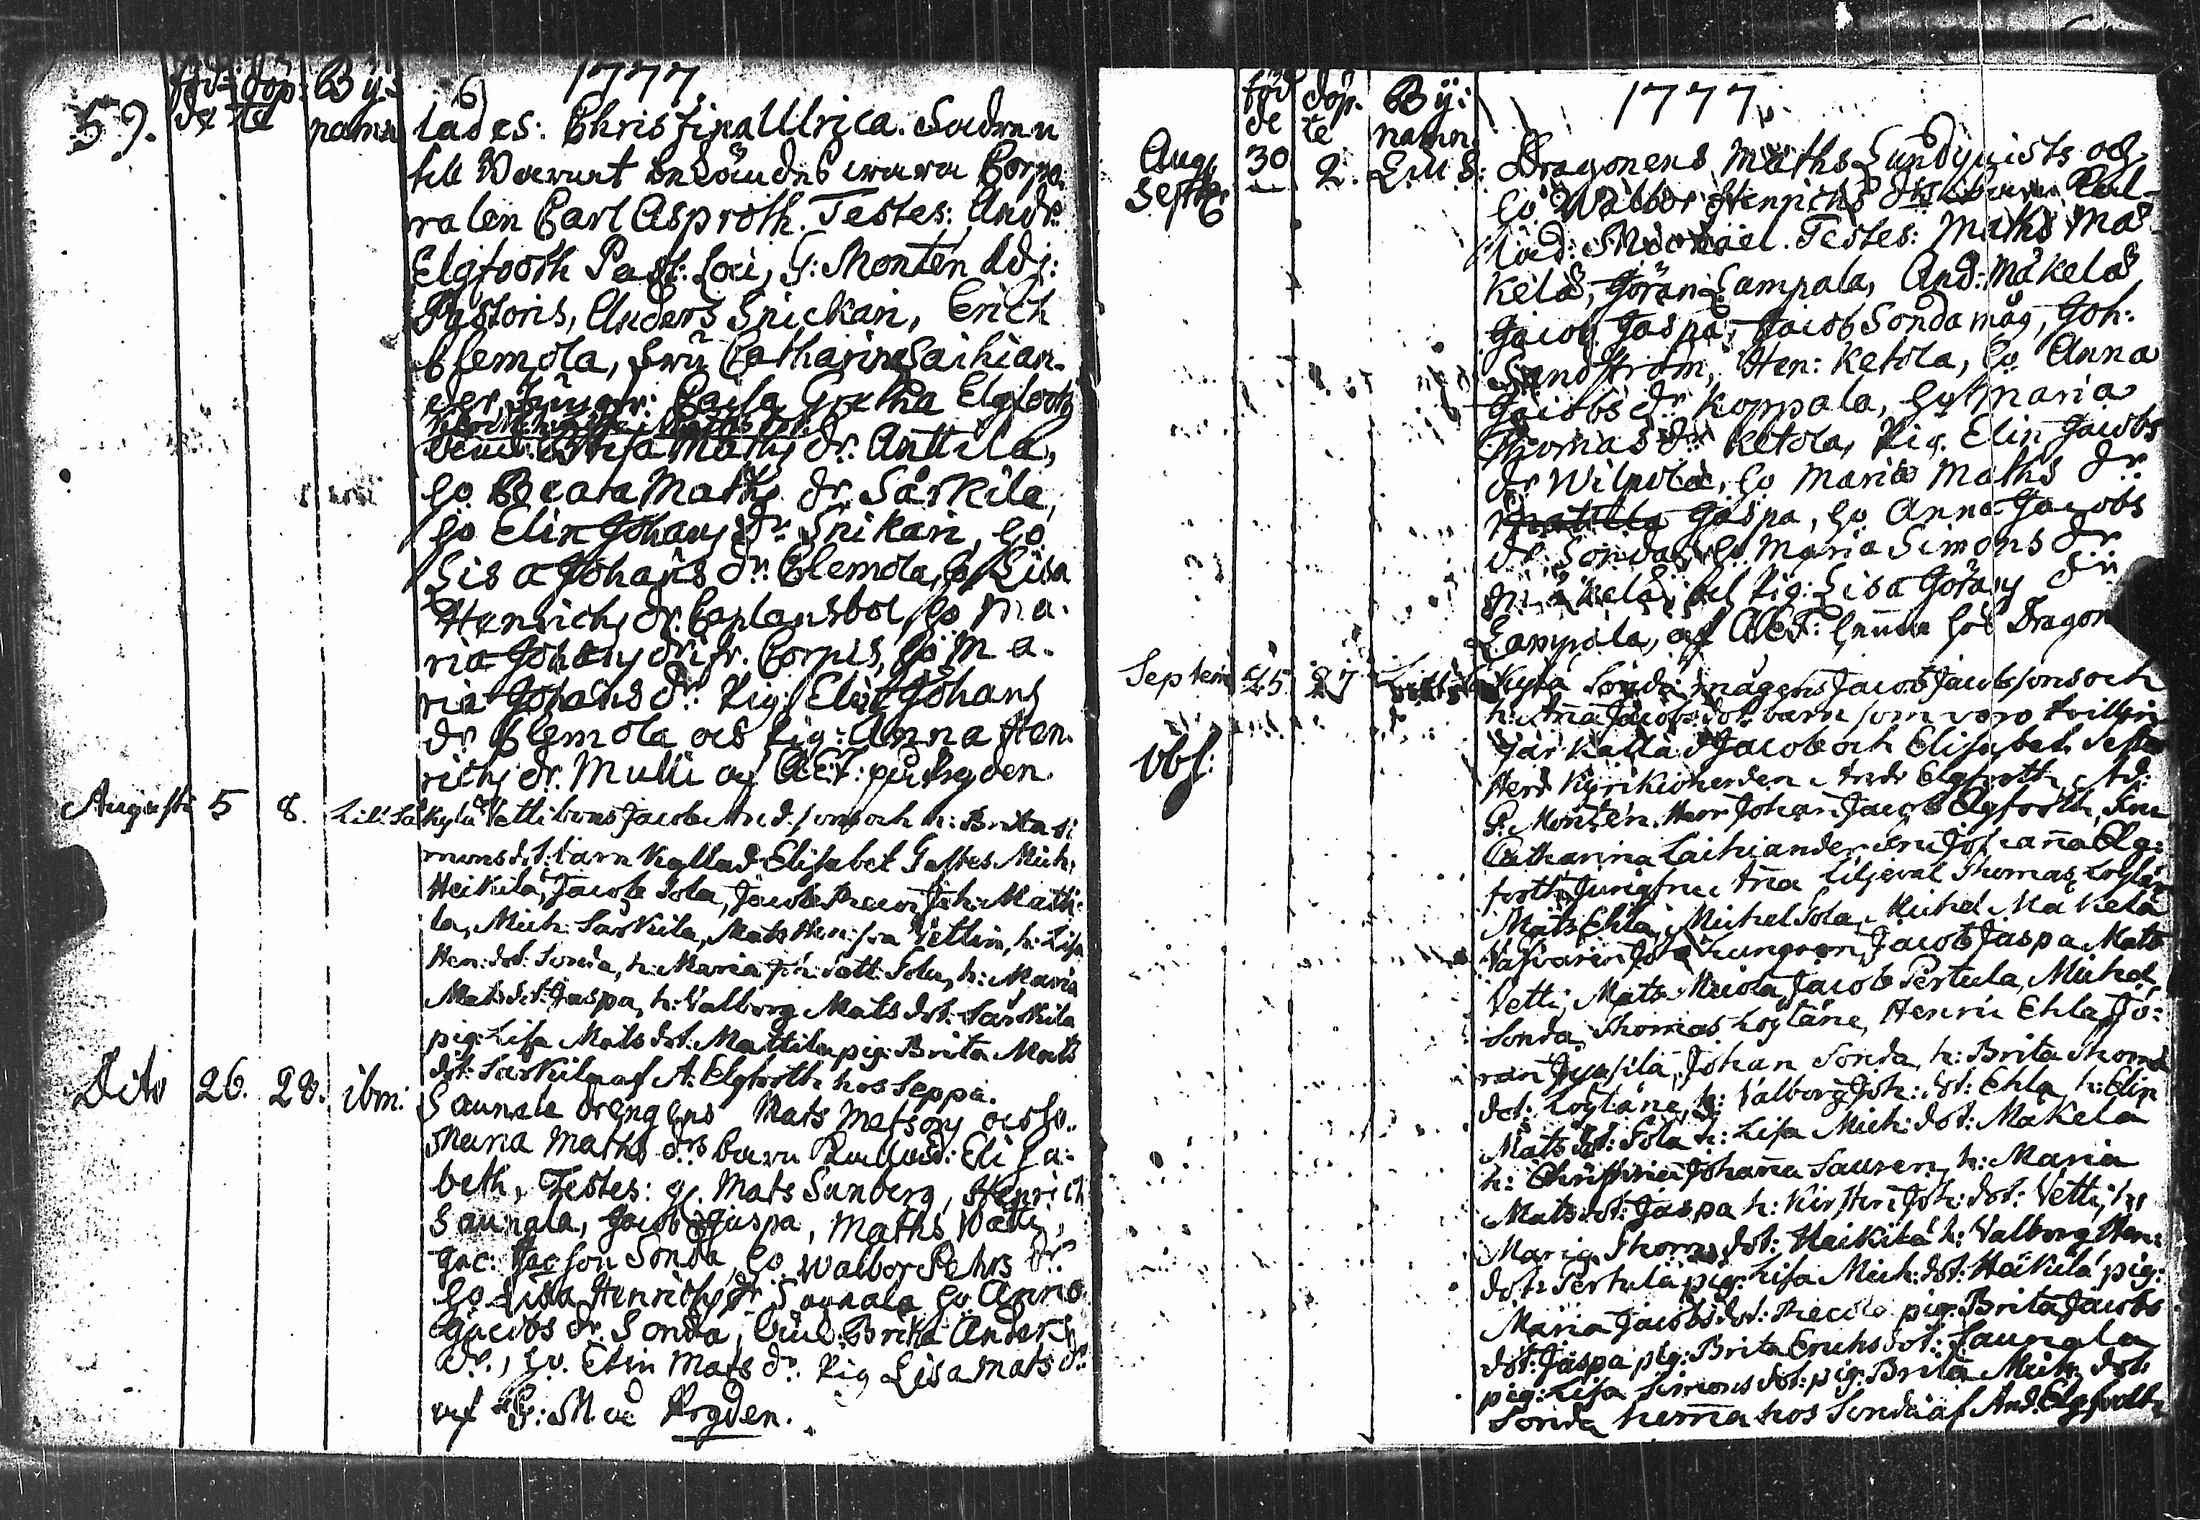 59.
föd= döp: By=
de te namn
6) 1777.
lades: Christina Ulrica. Fadren
till Barnet bekändes wara Corpo-
ralen Carl Asproth. Testes: Andr:
Elgfooth Past: Loci, G: Montén Adj:
Pastoris, Anders Snickari, Erich
Clemola, Fru Catharina Laihian-
der, Jungfr: Caisa Gretha Elgfooth
Lisa Maths dr. Anttila,
ho Beata Maths dr. Särkilä,
ho Elin Johans dr. Snikari, ho
Lisa Johans dr. Clemola, ho Lisa
Henrichs dr. Caplansbol, ho Ma-
ria Johans dr. fr. Corpis, ho Ma-
ria Johans dr. Pig: Elin Johans
dr Clemola och Pig: Anna Hen-
richs dr. Mulli af A:E.F: på Prgden.
Augusti 5 8. Lill: Säkylä Vetti bons Jacob And:sons och h: Brita Si
mons dot: barn kallad Elisabet Testes Mich:
Heikilä, Jacob Sola, Jacob Joh: Matti-
la, Mich: Särkilä, Mats Hen:son Vettin, h: Lisa
Hen: dot: Sonda, h: Maria Joh: dott: Sola, h: Maria
Mats dot: Jaspa, h: Valborg Mats dot: Särkilä
pig: Lisa Mats dot: Mattila pig: Brita Mats
dot: Särkilä af A: Elgfooth hos Seppä.
Dito 26. 28. ibm: Saunala drengens Mats Matsons och ho.
Maria Maths drs barn Kallad: Elisa-
beth, Testes: g. Mats Sunberg, Henrich
Saunala, Jacob Jaspa, Maths Vätti,
Jac: Jacson Sonda, ho Walbor Pehrs dr.
ho Lisa Henrichs dr Saunala ho Anna
Jacobs dr. Sonda, Brita Anders
dr., ho. Elin Mats dr. Pig Lisa Mats dr
af G: M: å Prgden.
föd döp. By:
de te namn
1777.
Aug: 30 2. Lill S: Dragonens Maths Sundquists och
Septr. ho Walbor Henrichs drs barn Kal-
lad: Michael. Testes: Maths Mä-
kelä, Jöran Lampala, And: Mäkelä
Jacob Jaspa, Jacob Sonda måg, Joh:
Sandström, Hen: Ketola, ho Anna
Jacobs dr Koppala, ho Maria
Thomas dr Ketola, Pig. Elin Jacobs
dr Wilpola, ho Maria Maths dr.
Mattila Jaspa, ho Anna Jacobs
dr. Sonda, ho Maria Simons dr
Mäkelä, Pig: Lisa Jörans dr
Lampola, af A:E:F: hema hos Dragon
Septem 25 27 Kylä Sonda mågens Jacob Jacobsons och
h: Aña Jacobs dot: barn som voro tvillin-
gar kallad Jacob och Elisabet. Testes
Obs: Herr Kyrkioherden Andr Elgfooth, Ad:
G. Montén. Herr Johan Jacob Elgfooth, Fru
Catharina Laihiander Fru Johaña Elg:
footh Jungfru Aña Liljeval Thomas Löytäne
Mats Ehla, Michel Sola, Michel Mäkelä
Jacob Jaspa Mats
Vetti, Mats Jacob Pertula, Michel
Sonda, Thomas Löytäne, Henric Ehla Jö:
ran Jussila, Johan Sonda, h: Brita Thoms
dot: Löytäne, h: Valborg Joh: dot: Ehla, h: Elin
Mats dot: Sola h: Lisa Mich: dot: Mäkelä
h: Christina Johaña Sauren, h: Maria
Mats dot: Jaspa h: Kirstin Joh: dot: Vetti, h:
Maria Thoms dot: Heikilä h: Valborg Hen:
dot: Pertula pig: Lisa Mich: dot: Heikilä pig:
Maria Jacobs dot: pig: Brita Jacobs
dot: Jaspa pig: Brita Erichs dot: Saunala
pig: Lisa Simons dot: pig: Brita Mich: dot:
Sonda hema hos Sonda af And: Elgfooth